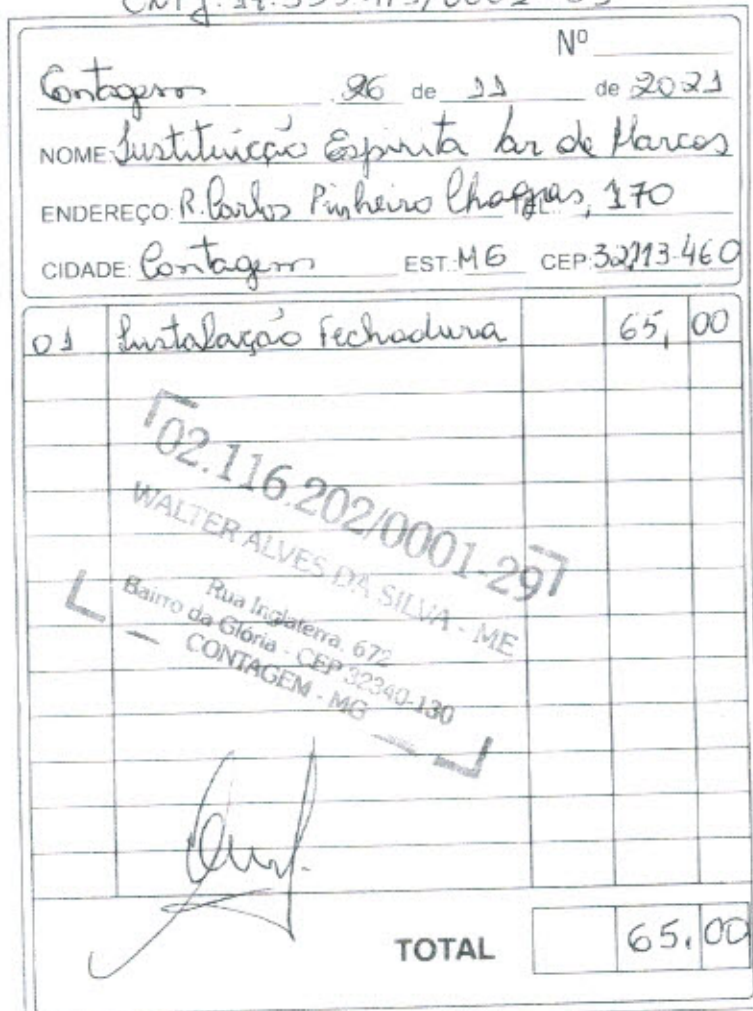 Nº
Contagem 26 de 11 de 2021
NOME: Instituição Espírita Lar de Marcos
ENDEREÇO: R. Carlos Pinheiro Chagas, 170
CIDADE: Contagem EST.: MG CEP: 32113-460
01 Instalação Fechadura 65,00
02.116.202/0001-29
WALTER ALVES DA SILVA - ME
Rua Inglaterra, 672
Bairro da Glória - CEP 32340-130
CONTAGEM - MG
TOTAL 65,00